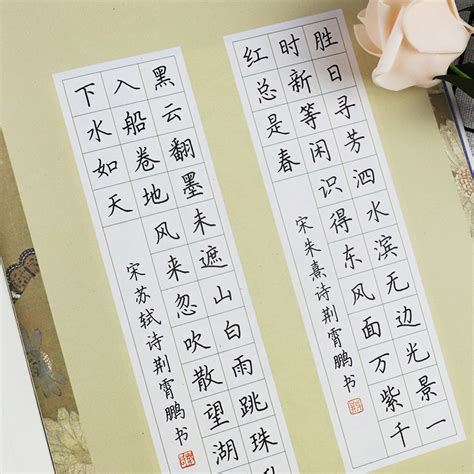 胜日寻芳泗水滨无边光景一
时新等闲识得东风面万紫千
红总是春
宋朱熹诗荆霄鹏书
黑云翻墨未遮山白雨跳珠
入船卷地风来忽吹散望湖
下水如天
宋苏轼诗荆霄鹏书